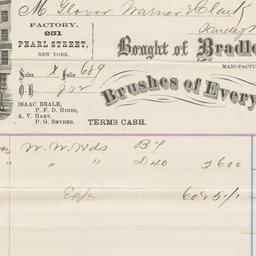 M. Glover Warner & Clark
FACTORY,
251
PEARL STREET,
NEW YORK.
Bought of Bradle
MANUFACTU
Sales 8 Folio 689
O.B.
Brushes of Every
ISAAC BEALE,
P. F. D. HIBBS,
A. V. HART,
P. G. SNYDER.
TERMS CASH.
W. W. Wds B7
" " " D40 3600
Exp. 6085